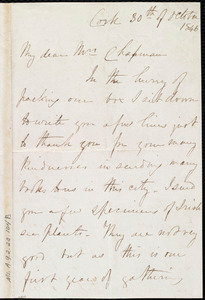 Cork 30th of October
1846
My dear Mrs Chapman
In the hurry of
packing our box I sit down
to write you a few lines just
to thank you for your many
kindnesses in sending many
to us in this city. I send
you a few specimens of Irish
sea plants. They are not very
good but as this is our
first year of gathering